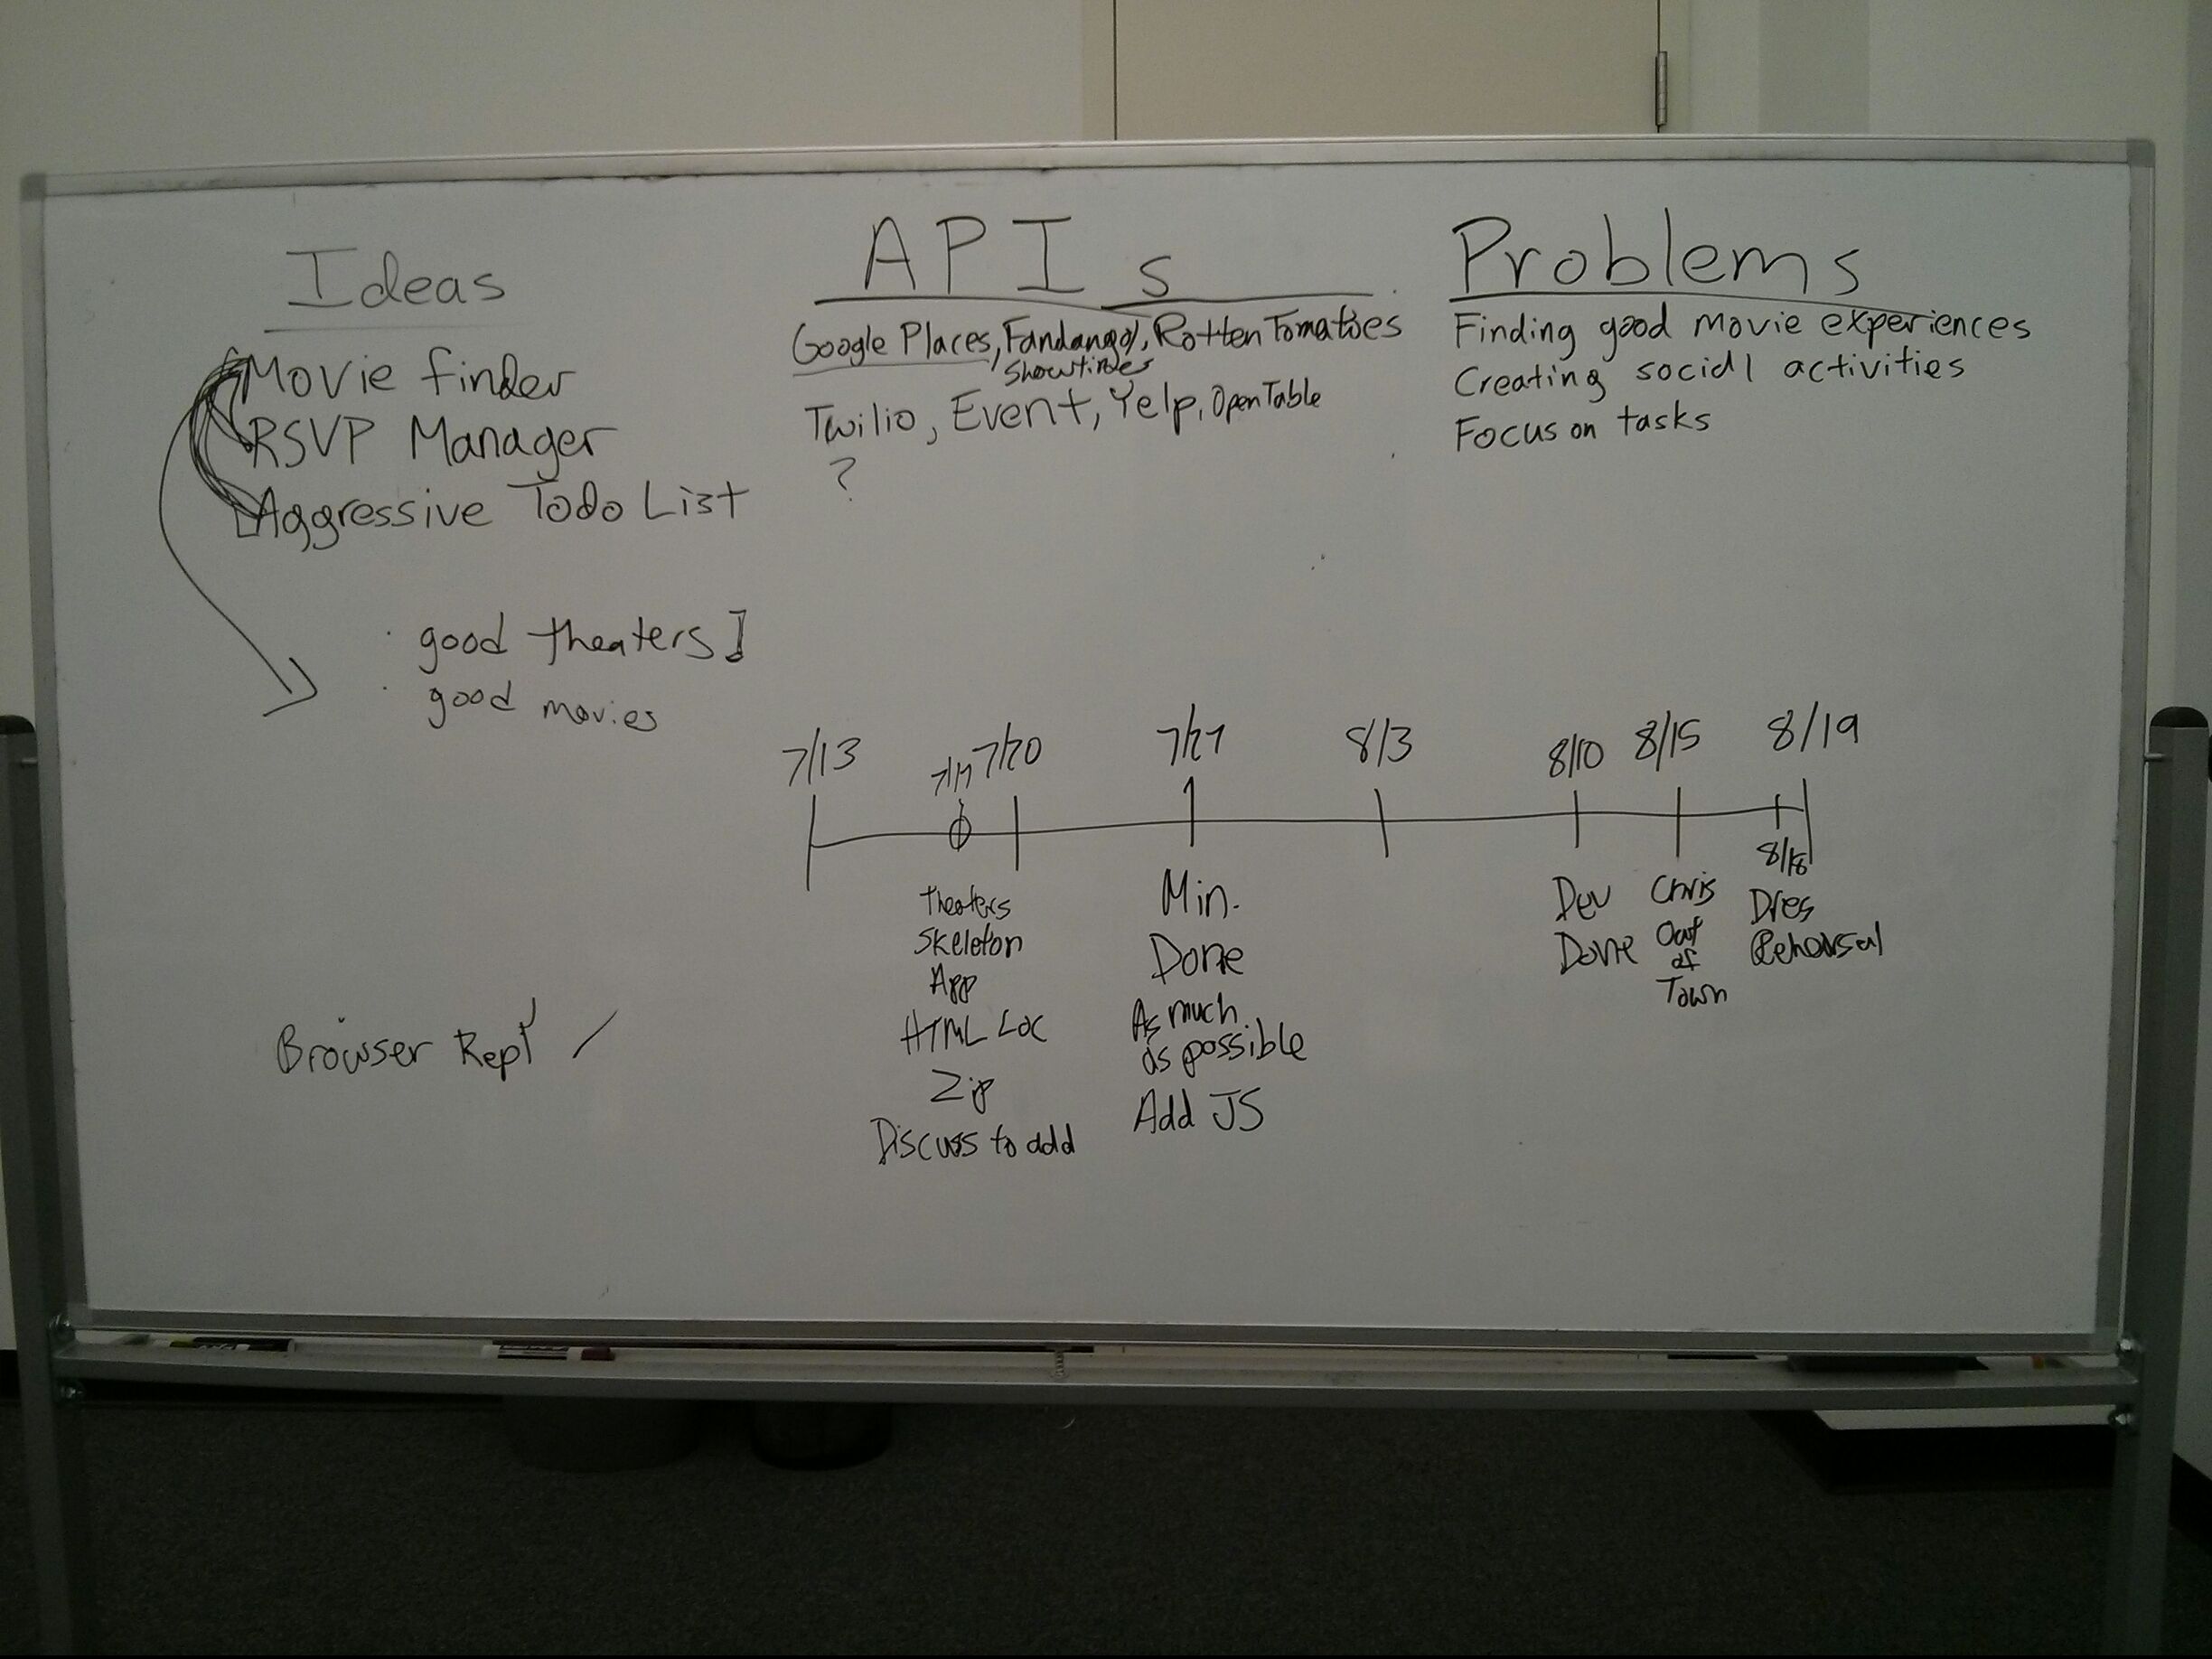 Ideas
Movie finder
RSVP Manager
Aggressive Todo List
· good theaters]
· good movies
Browser Rept
APIs
Google Places, Fandango, Rotten Tomatoes
Showtimes
Twilio, Event, Yelp, OpenTable
?
Problems
Finding good movie experiences
Creating social activities
Focus on tasks
7/13
7/20
7/27
8/3
8/10
8/15
8/19
8/18
Theaters
Skeleton
App
HTML Loc
Zip
Discuss to add
Min.
Done
As much
as possible
Add JS
Dev
Done
Chris
Out
of
Town
Dres
Rehearsal